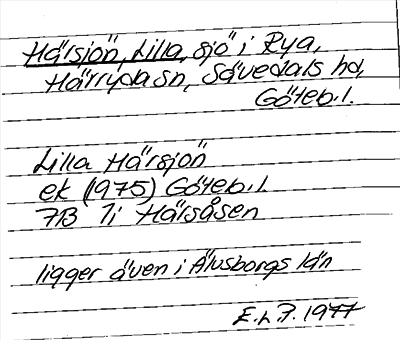 Härsjön, Lilla, sjö i Rya,
Härryda sn, Sävedals hd,
Göteb. l.
Lilla Härsjön
ek (1975) Göteb. l
7B 7i Härsåsen
ligger även i Älvsborgs län
E.L.P. 1977